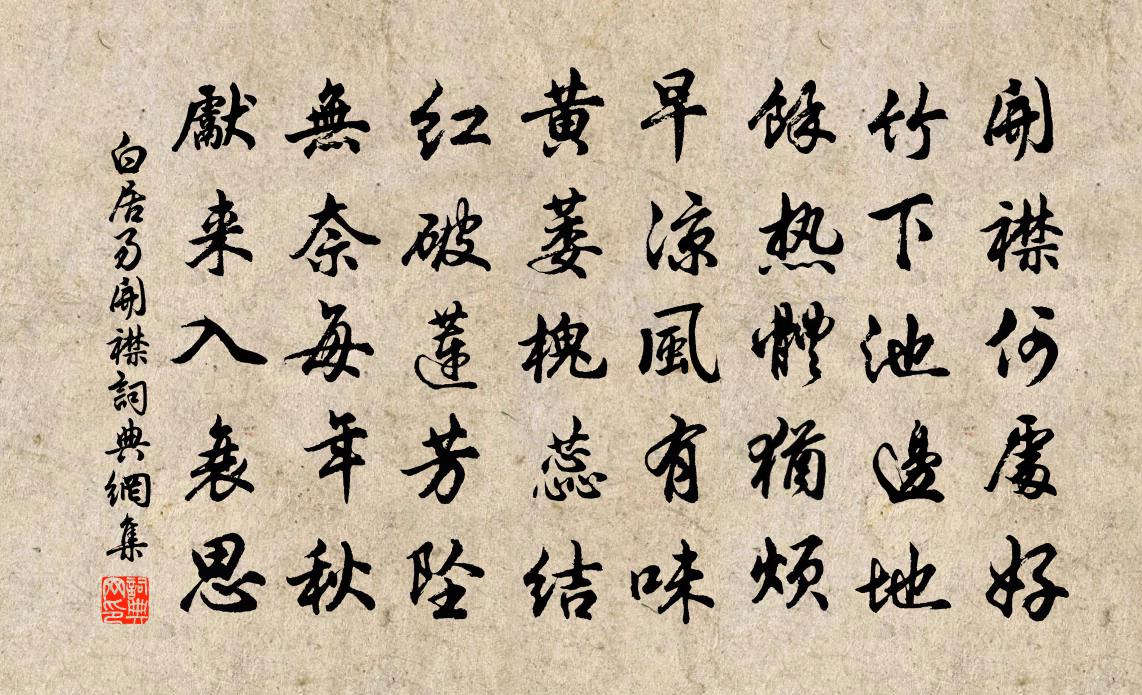 開襟何處好
竹下池邊地
餘热體猶煩
早涼風有味
黃萎槐蕊結
紅破蓮芳墜
無奈每年秋
獻来入衰思
白居易開襟詞典網集
詞典網印